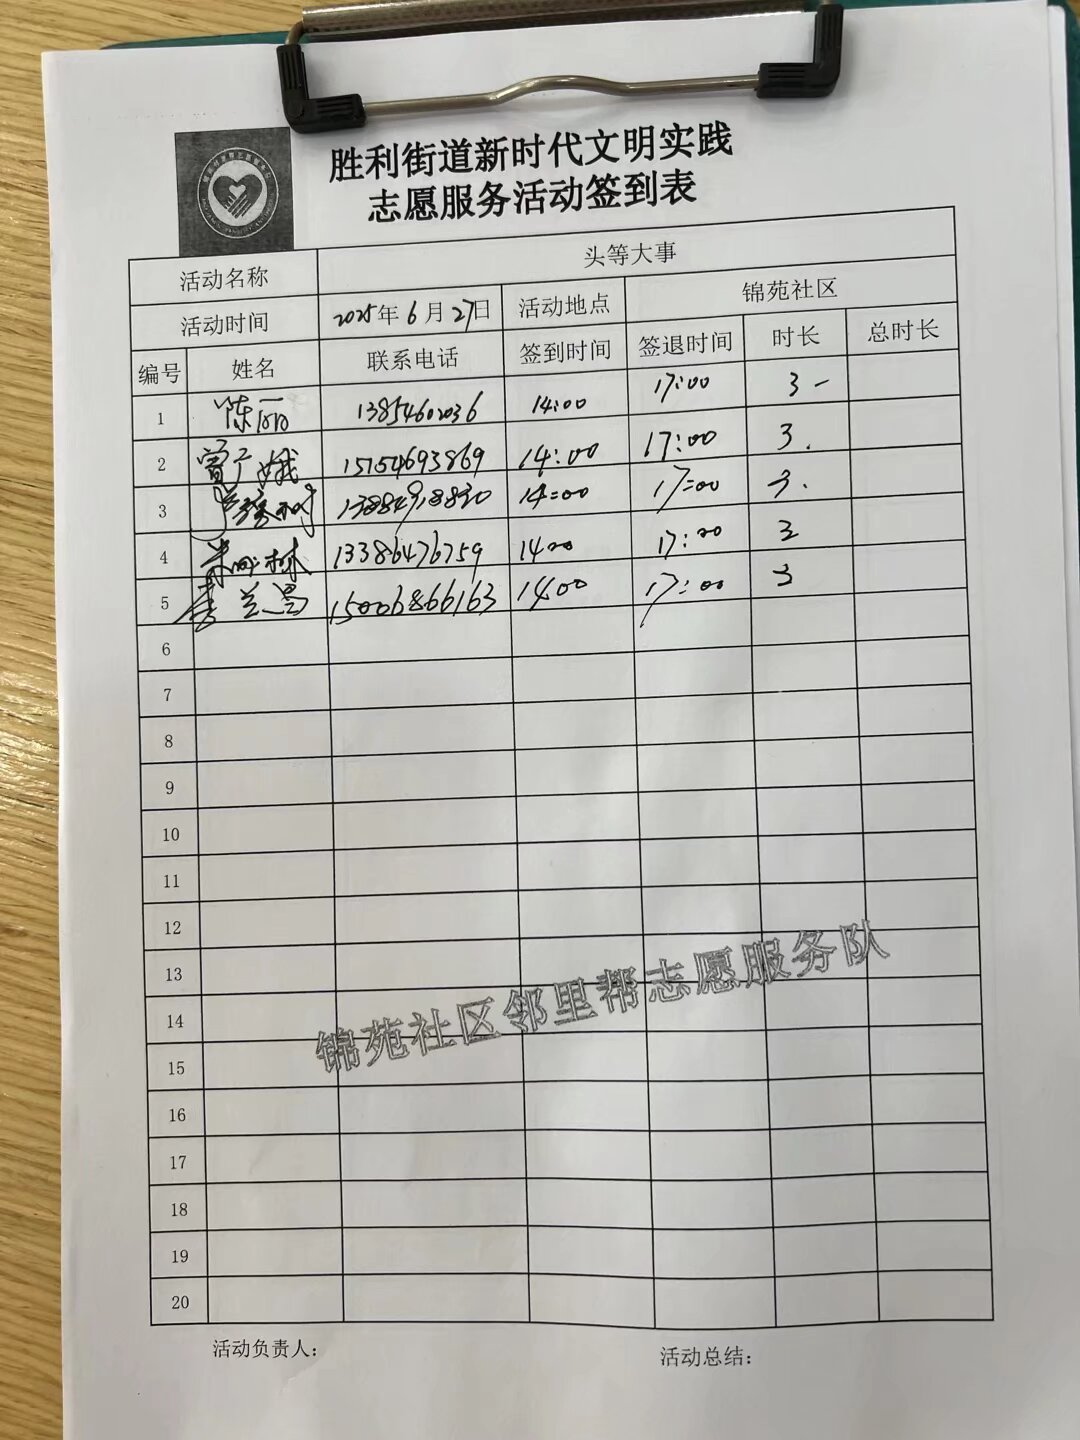 胜利街道新时代文明实践
志愿服务活动签到表
活动名称 头等大事
活动时间 2025年6月27日 活动地点 锦苑社区
编号 姓名 联系电话 签到时间 签退时间 时长 总时长
1 陈丽 13854602036 14:00 17:00 3
2 15154693869 14:00 17:00 3.
3 13884918830 14:00 17:00 3.
4 13386476759 1400 17:00 3
5 15006866163 1400 17:00 3
6
7
8
9
10
11
12
13
14
15
16
17
18
19
20
锦苑社区邻里帮志愿服务队
活动负责人： 活动总结：